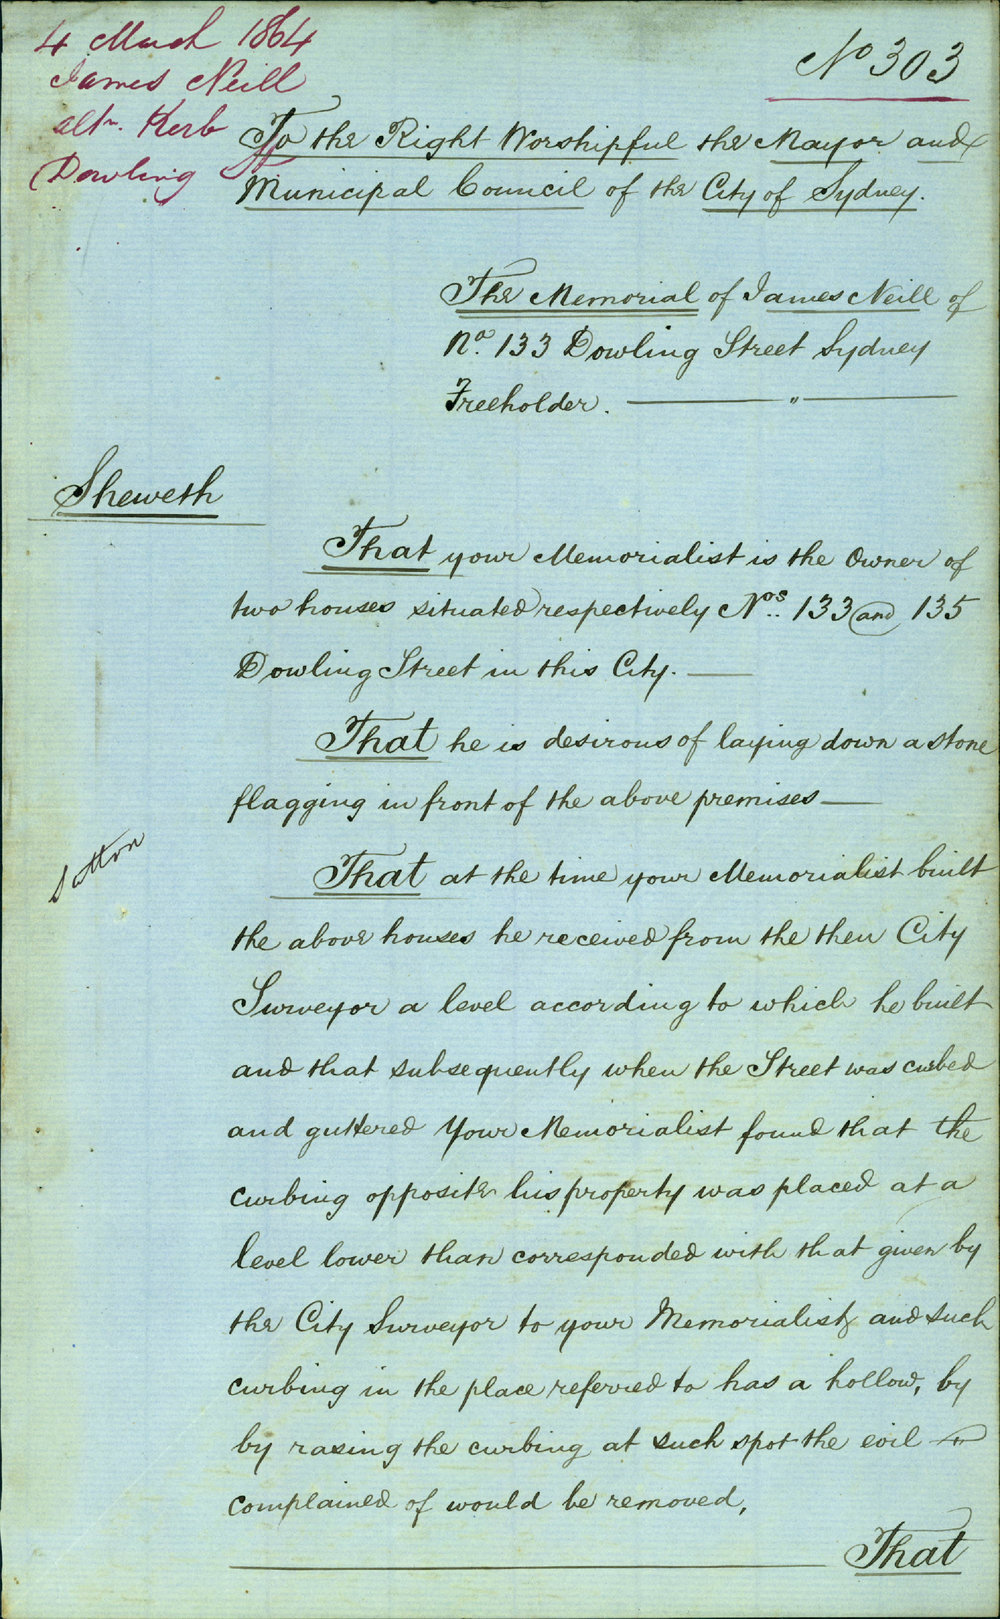 4 March 1864
James Neill
altn. Kerb
Dowling
No 303
To the Right Worshipful the Mayor and
Municipal Council of the City of Sydney.
The Memorial of James Neill of
No. 133 Dowling Street Sydney
Freeholder. ——— " ———
Sheweth
That your Memorialist is the Owner of
two houses situated respectively Nos. 133 and 135
Dowling Street in this City. —
That he is desirous of laying down a stone
flagging in front of the above premises —
Sutton
That at the time your Memorialist built
the above houses he received from the then City
Surveyor a level according to which he built
and that subsequently when the Street was curbed
and guttered Your Memorialist found that the
curbing opposite his property was placed at a
level lower than corresponded with that given by
the City Surveyor to your Memorialist, and such
curbing in the place referred to has a hollow, by
by rasing the curbing at such spot the evil
complained of would be removed,
That